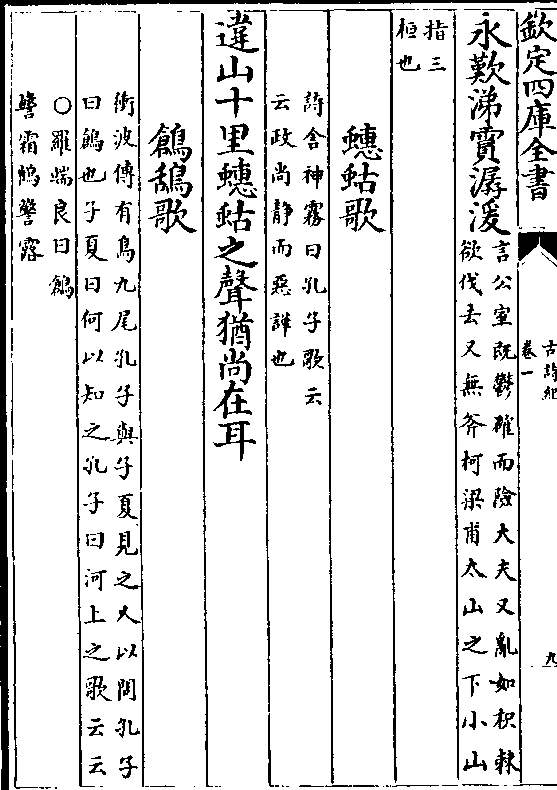 欽定四庫全書
古詩紀
卷一
九
永歎涕霣潺湲
言公室既鬱確而險大夫又亂如枳棘
欲伐去又無斧柯梁甫太山之下小山
指三
桓也
蟪蛄歌
詩含神霧曰孔子歌云
云政尚静而惡譁也
違山十里蟪蛄之聲猶尚在耳
鶬鴰歌
衝波傳有鳥九尾孔子與子夏見之人以問孔子
曰鶬也子夏曰何以知之孔子曰河上之歌云云
○羅端良曰鶬
鴰霜鶴警露